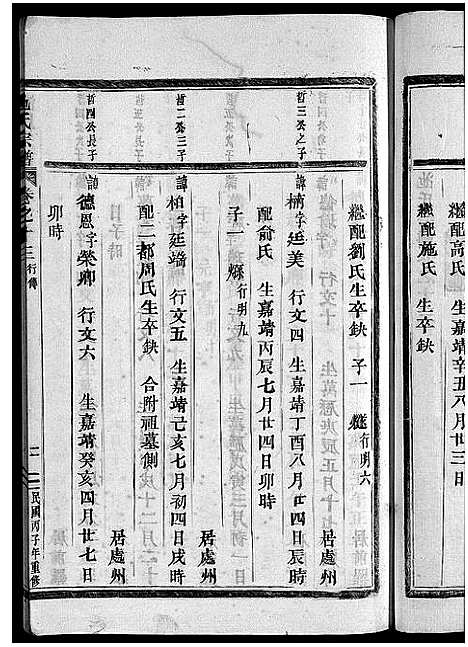 繼配高氏 生嘉靖辛丑八月廿三日
繼配施氏 生卒缺
繼配劉氏生卒缺 子一 行明六
居處州
哲三公之子
諱柄字廷美 行文四 生嘉靖丁酉八月廿四日辰時
配俞氏 生嘉靖丙辰七月廿四日卯時
子一 行明九
居處州
哲二公三子
諱柏字廷端 行文五 生嘉靖己亥七月初四日戌時
配二都周氏生卒缺 合附祖墓側
居處州
哲四公長子
諱德恩字榮卿 行文六 生嘉靖癸亥四月廿七日
卯時
氏宗譜 卷之十三 行傳
民國丙子年重修